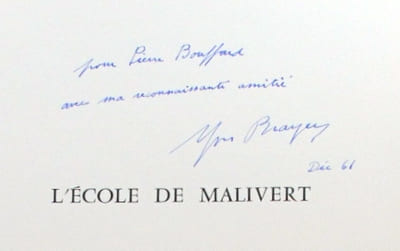 pour Pierre Bouffard
avec ma reconnaissante amitié
Yves Brayer
Déc 61
L'ÉCOLE DE MALIVERT